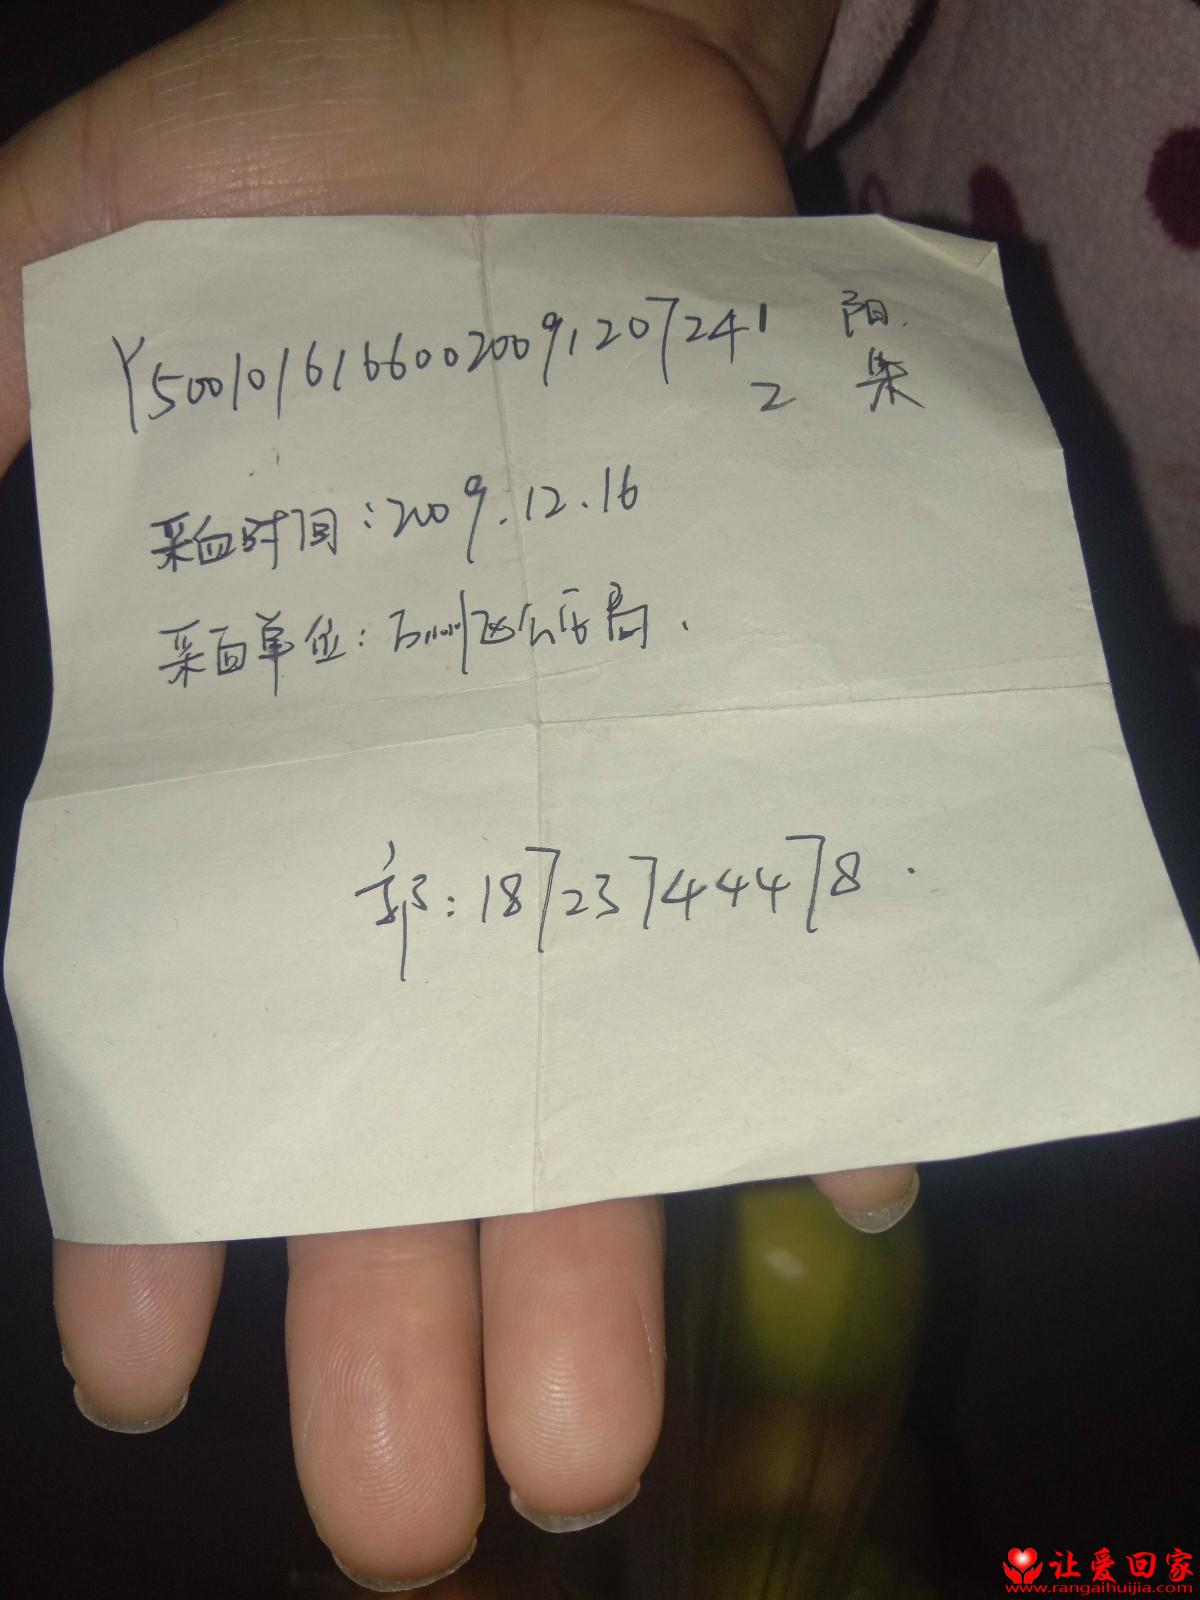 Y50010161660020091207241 阳.
2 染
采血时间:2009.12.16
采血单位:万州区公安局.
郭:18723744478.
让爱回家
www.rangaihuijia.com